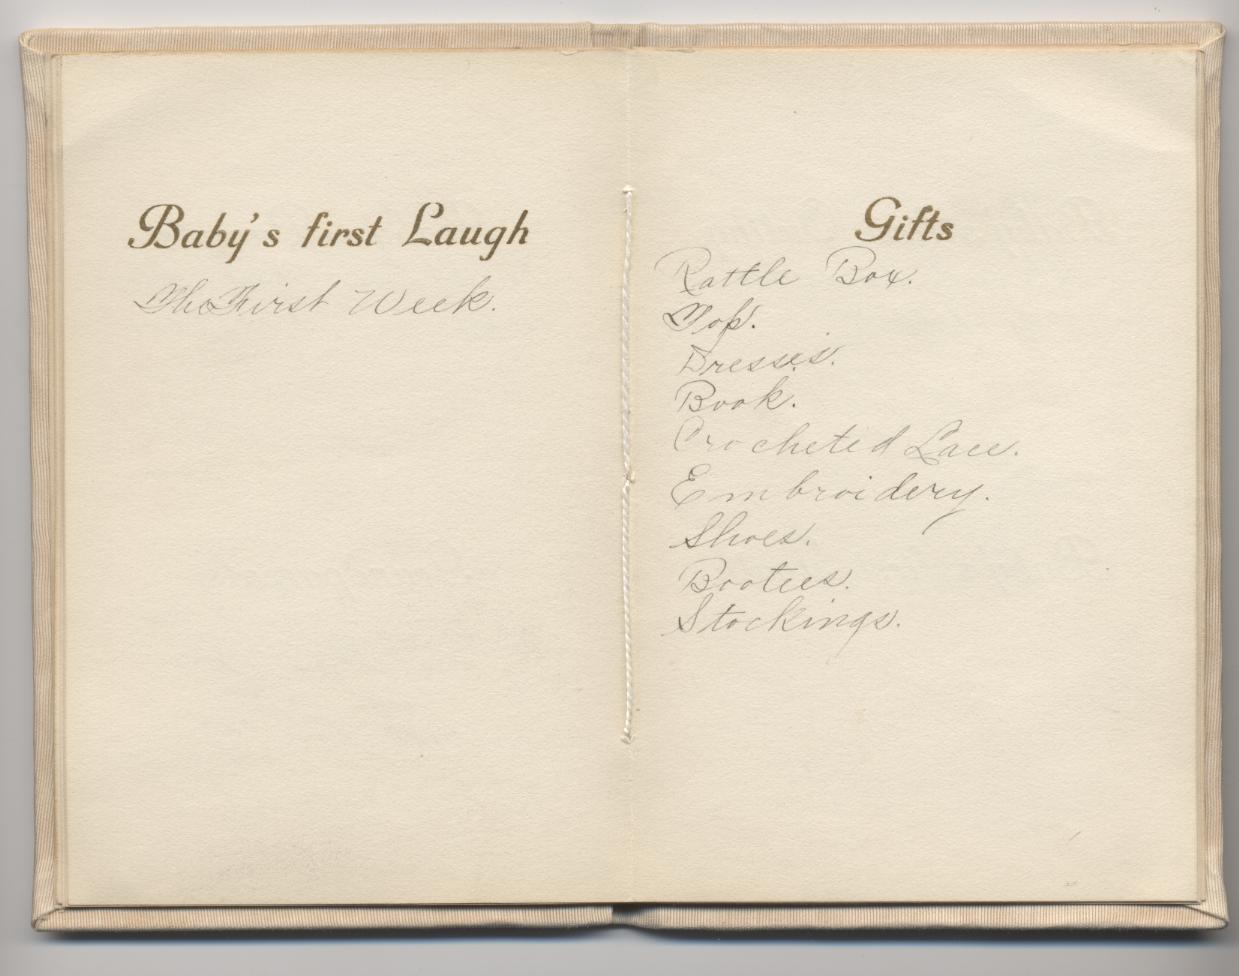 Baby's first Laugh
The First Week.
Gifts
Rattle Box.
Top.
Dresses.
Book.
Crocheted Lace.
Embroidery.
Shoes.
Bootees.
Stockings.